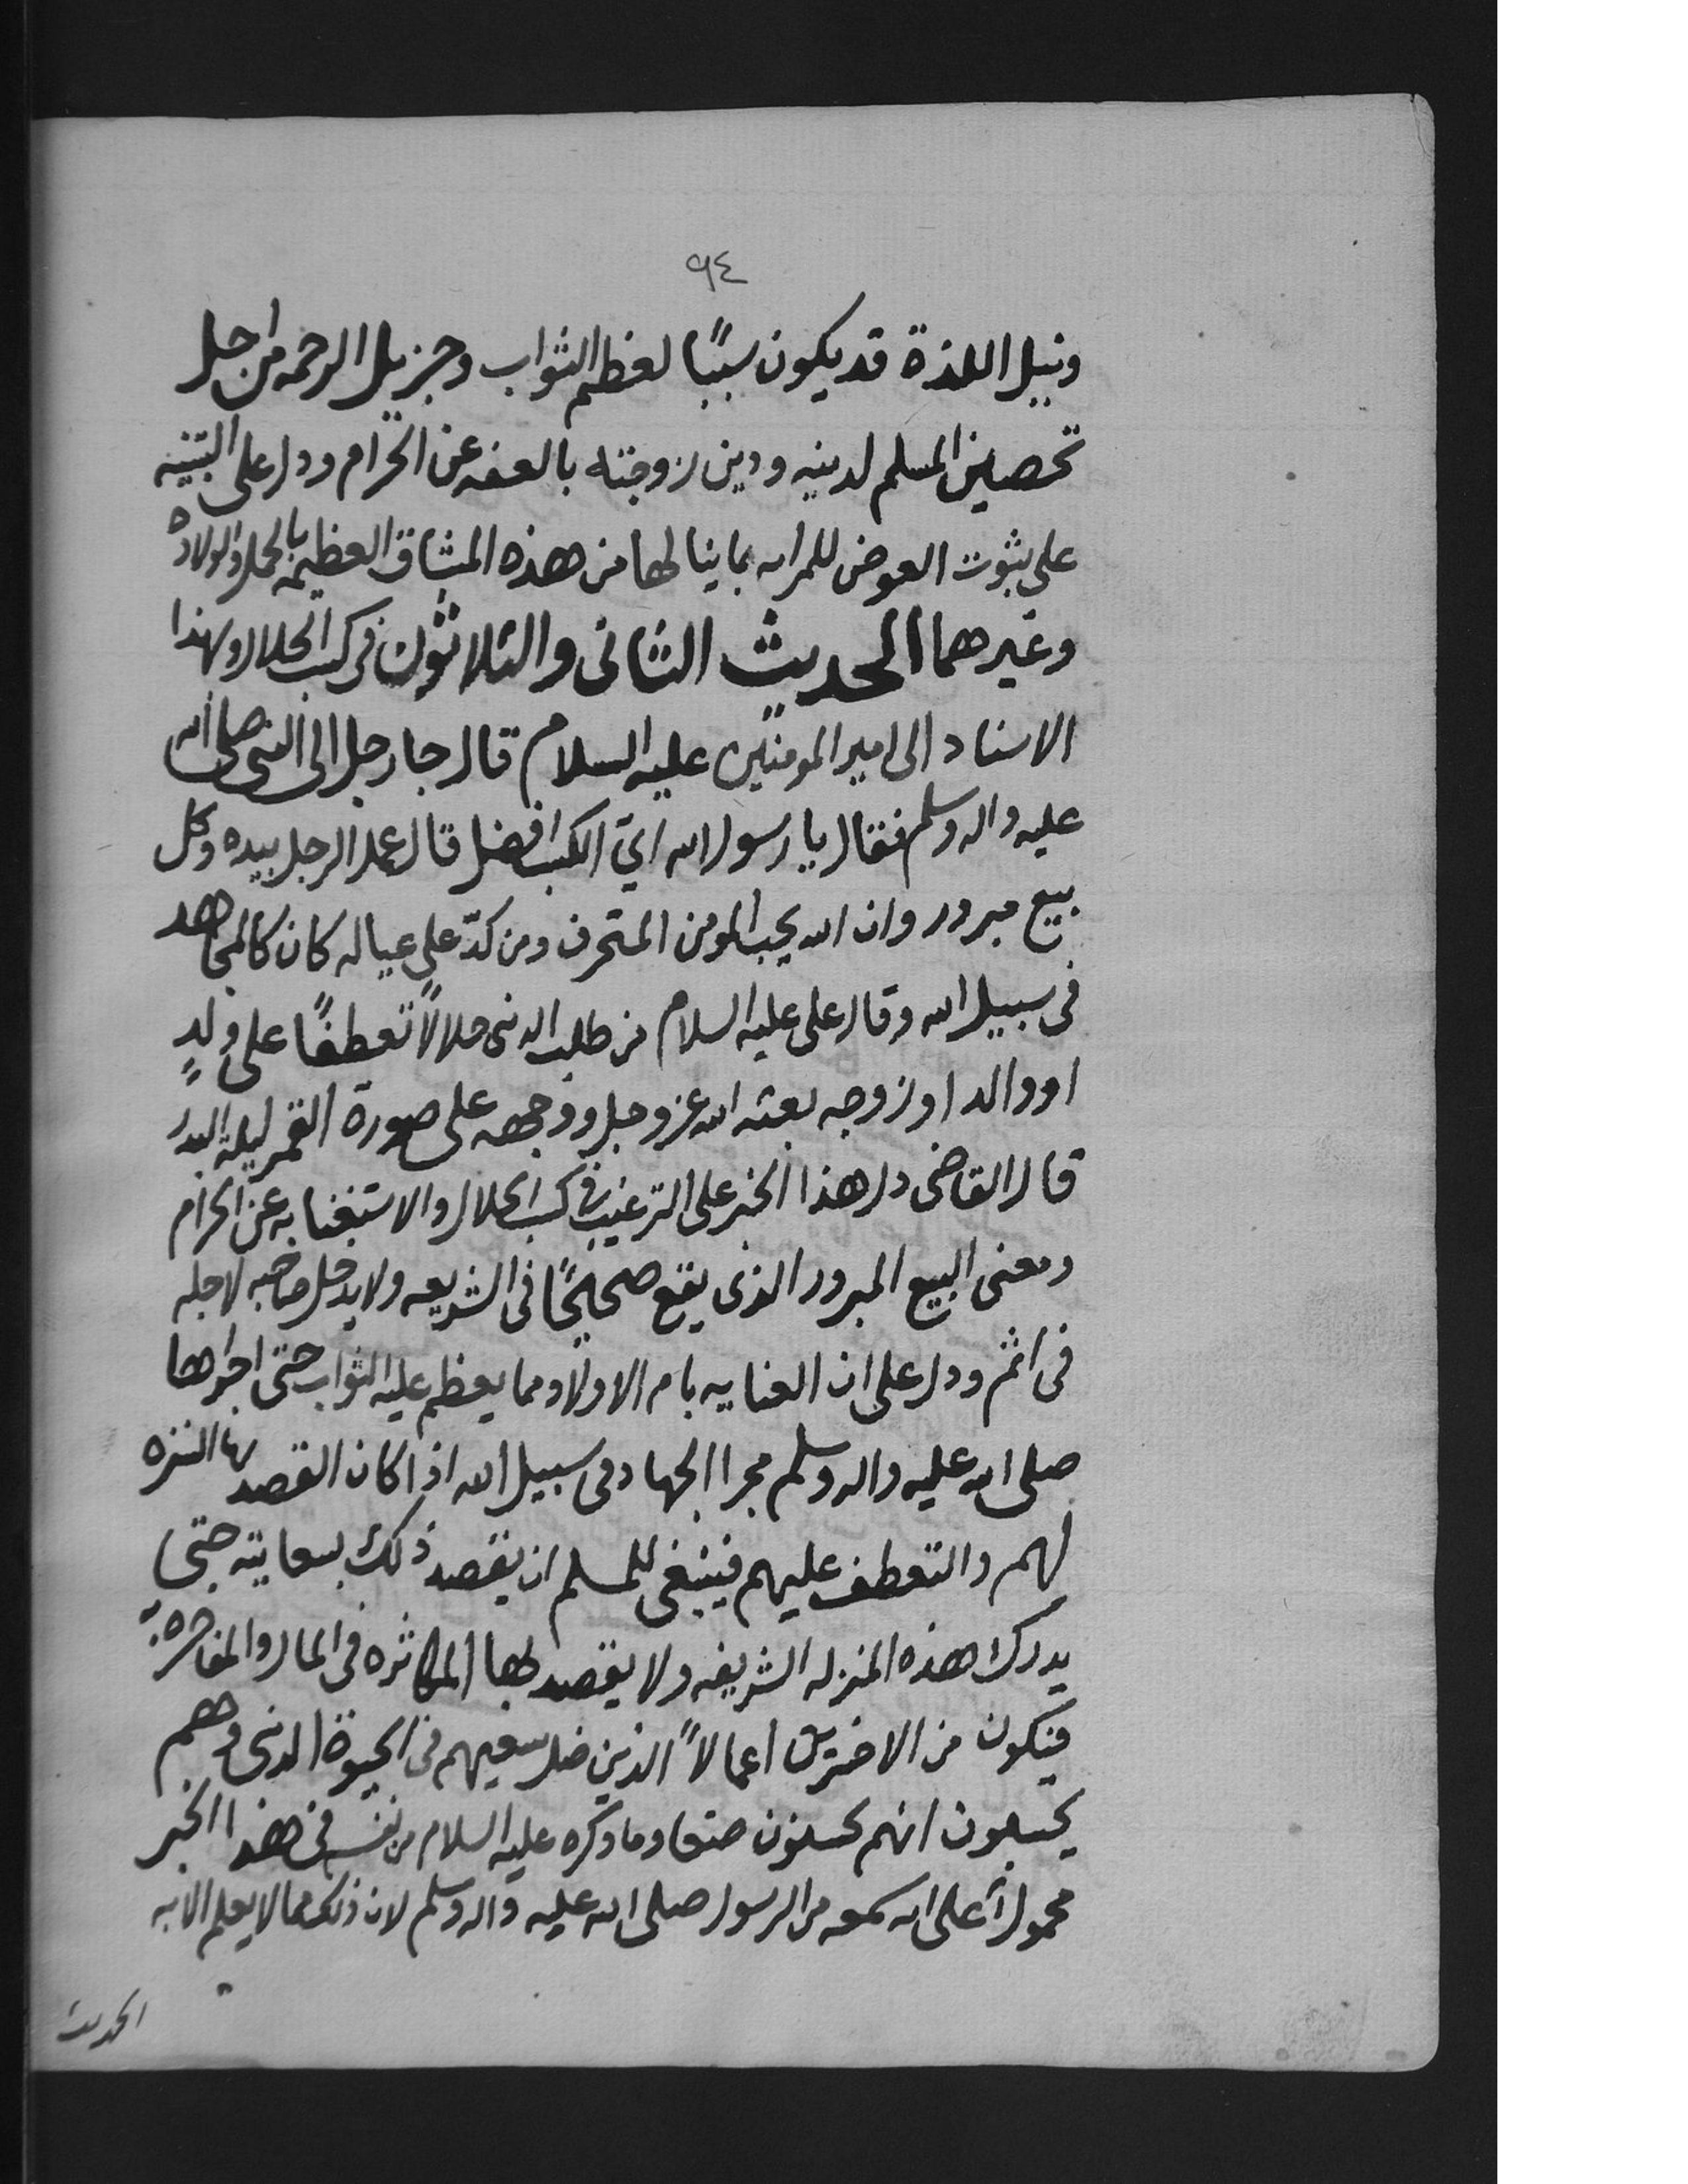 ٩٤
ونيل اللذة قد يكون سببًا لعظم الثواب وجزيل الرحمه من اجل
تحصين المسلم لدينه ودين زوجته بالعفه عن الحرام ودل على التنبيه
على ثبوت العوض للمراه بما ينالها من هذه المشاق العظيمه بالحمل والولاده
وغيرهما الحديث الثانى والثلاثون فى كسب الحلال وبهذا
الاسناد الى امير المومنين عليه السلام قال جا رجل الى النبى صلى الله
عليه واله وسلم فقال يا رسول الله ايّ الكسب افضل قال عمل الرجل بيده وكل
بيع مبرور وان الله يحب المومن المتحرف ومن كدّ على عياله كان كالمجاهد
فى سبيل الله وقال على عليه السلام من طلب الدنى حلالاً تعطفًا على ولدٍ
او والد او زوجه بعثه الله عز وجل ووجهه على صورة القمر ليلة البدر
قال القاضى دل هذا الخبر على الترغيب فى كسب الحلال والاستغنا به عن الحرام
ومعنى البيع المبرور الذى يقع صحيحًا فى الشريعه ولا يدخل صاحبه لاجله
فى اثم ودل على ان العنايه بام الاولاد مما يعظم عليه الثواب حتى اجراها
صلى الله عليه واله وسلم مجرا الجهاد فى سبيل الله اذا كان القصد بها
لهم والتعطف عليهم فينبغى للمسلم ان يقصد ذلك بسعايته حتى
يدرك هذه المنزله الشريفه ولا يقصد بها المكاثره فى المال والمفاخره
فيكون من الاخسرين اعمالاً الذين ضل سعيهم فى الحيوة الدنى وهم
يحسبون انهم يحسنون صنعا وما ذكره عليه السلام من نفسه فى هذا الخبر
محمول على انه سمعه من الرسول صلى الله عليه واله وسلم لان ذلك مما لا يعلم الا به
الحديث